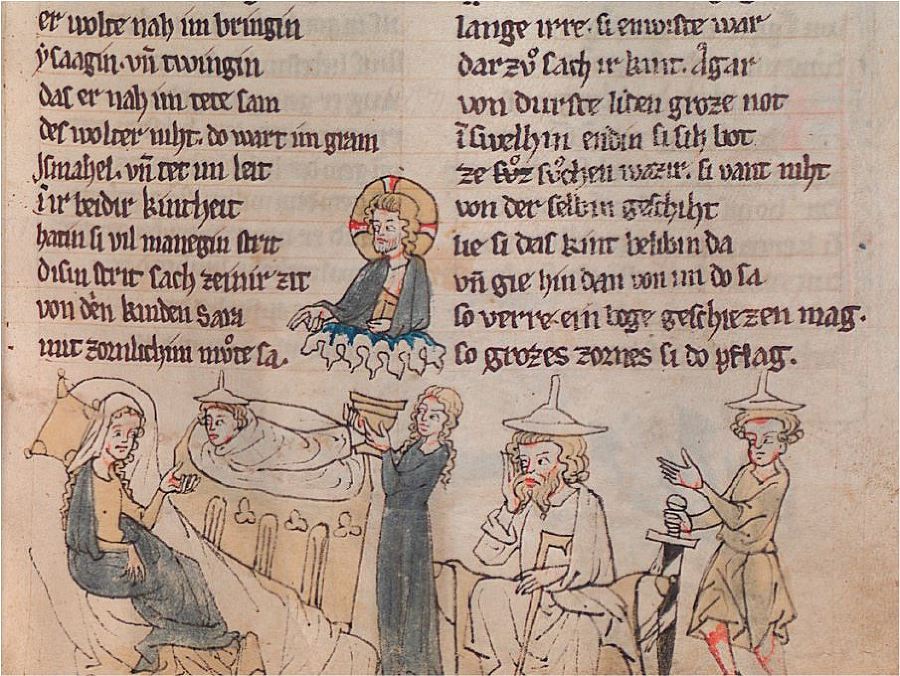 er wolte nah im bringin
ysaagin. vn̄ twingin
das er nah im tete sam
des wolter niht. do wart im gram
Jsmahel. vn̄ tet im leit
ī ir beidir kintheit
hatin si vil manegin strit
disin strit sach zeinir zit
von den kinden Sara
mit zornlichim mǒte sa.
lange irre. si enwiste war
darzů sach ir kint. Agar
von durste liden groze not
ī swelhin endin si sih bot
ze sůchen wazir. si vant niht
von der selbin geschiht
lie si das kint belibin da
vn̄ gie hin dan von im do sa
so verre ein boge geschiezen mag.
so grozes zornes si do pflag.